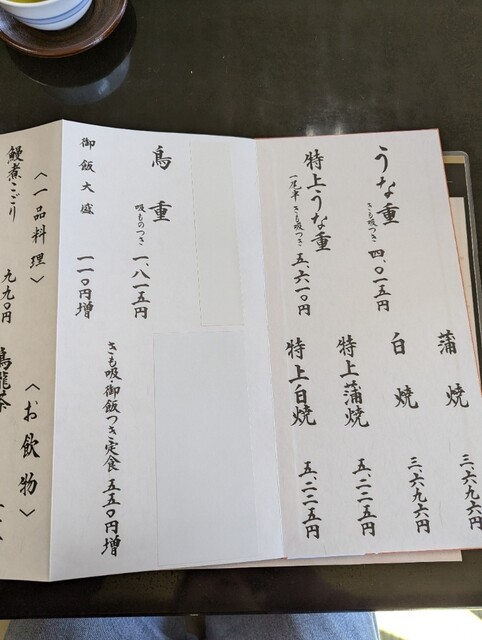 うな重
きも吸つき 四、〇一五円
特上うな重
一尾半 きも吸つき 五、六一〇円
蒲焼 三、六九六円
白焼 三、六九六円
特上蒲焼 五、二二五円
特上白焼 五、二二五円
鳥重
吸ものつき 一、八一五円
御飯大盛 一一〇円増
きも吸・御飯つき定食 五五〇円増
〈一品料理〉
鰻煮こごり 九九〇円
〈お飲物〉
烏龍茶